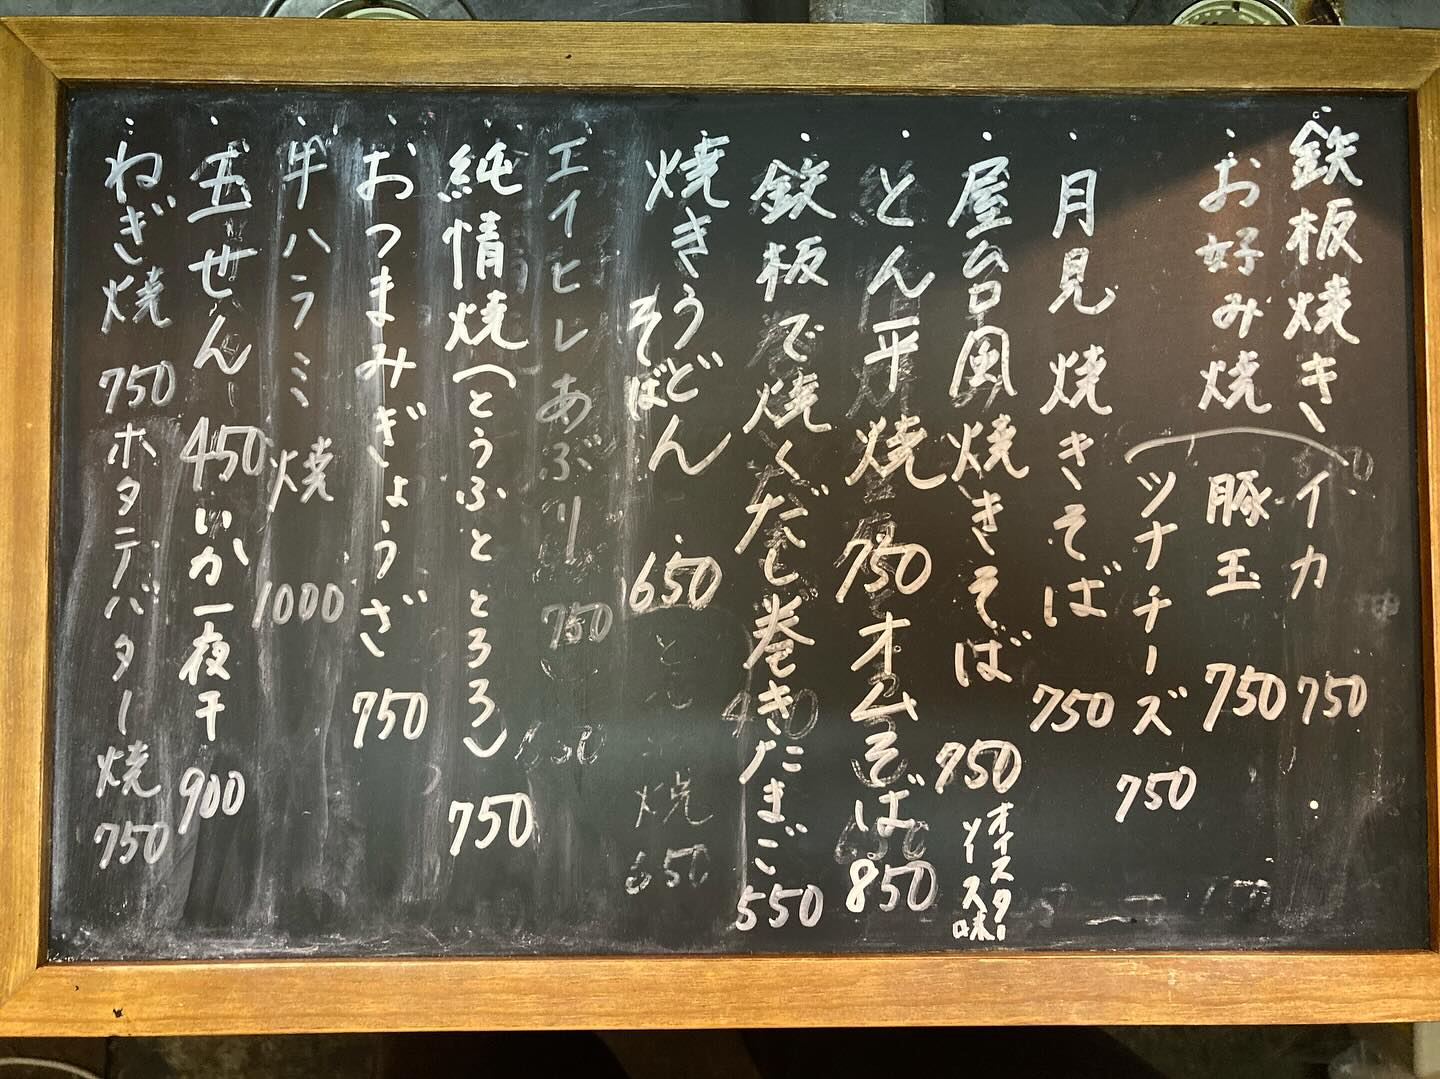 鉄板焼き
イカ 750
お好み焼
豚玉 750
ツナチーズ 750
月見焼きそば 750
屋台風焼きそば 950
オイスター
ソース味
とん平焼 750
オムそば 850
鉄板で焼くだし巻きたまご 550
焼きうどん
そば
650
焼 650
エイヒレあぶり 750
純情焼(とうふととろろ) 750
おつまみぎょうざ 750
牛ハラミ焼 1000
五せん 450
いか一夜干 900
ねぎ焼 750
ホタテバター焼 750